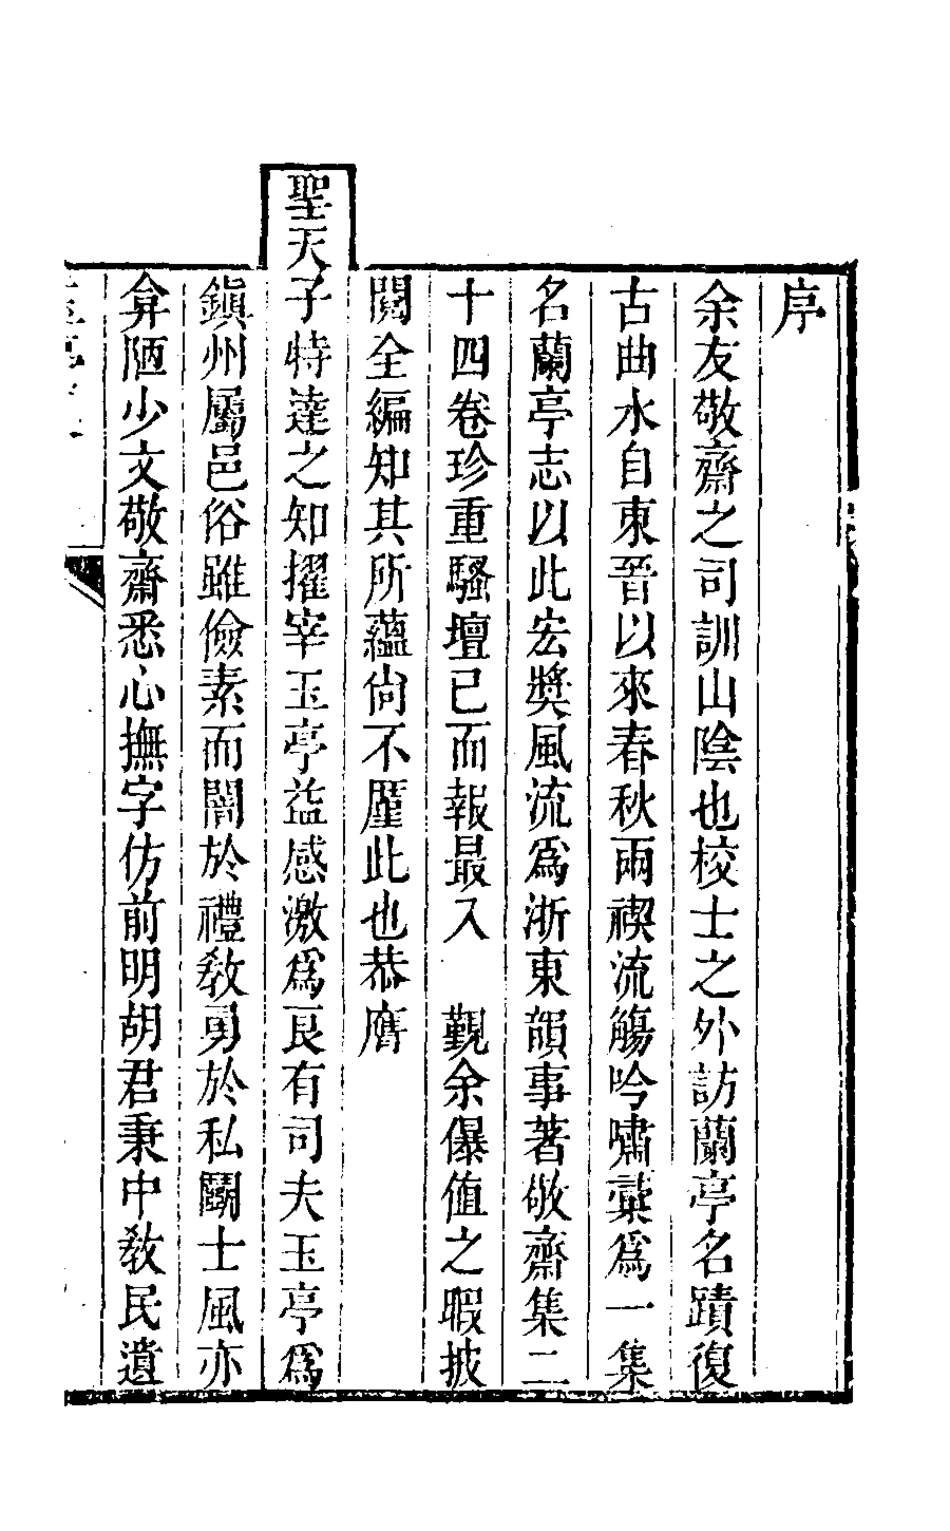 序
余友敬齋之司訓山陰也校士之外訪蘭亭名蹟復
古曲水自東晉以來春秋兩禊流觴吟嘯彙爲一集
名蘭亭志以此宏獎風流爲浙東韻事著敬齋集二
十四卷珍重騷壇已而報最入　覲余儤值之暇披
閱全編知其所蘊尙不厪此也恭膺
聖天子特達之知擢宰玉亭益感激爲良有司夫玉亭爲
鎮州屬邑俗雖儉素而闇於禮敎勇於私鬭士風亦
弇陋少文敬齋悉心撫字仿前明胡君秉中敎民遺